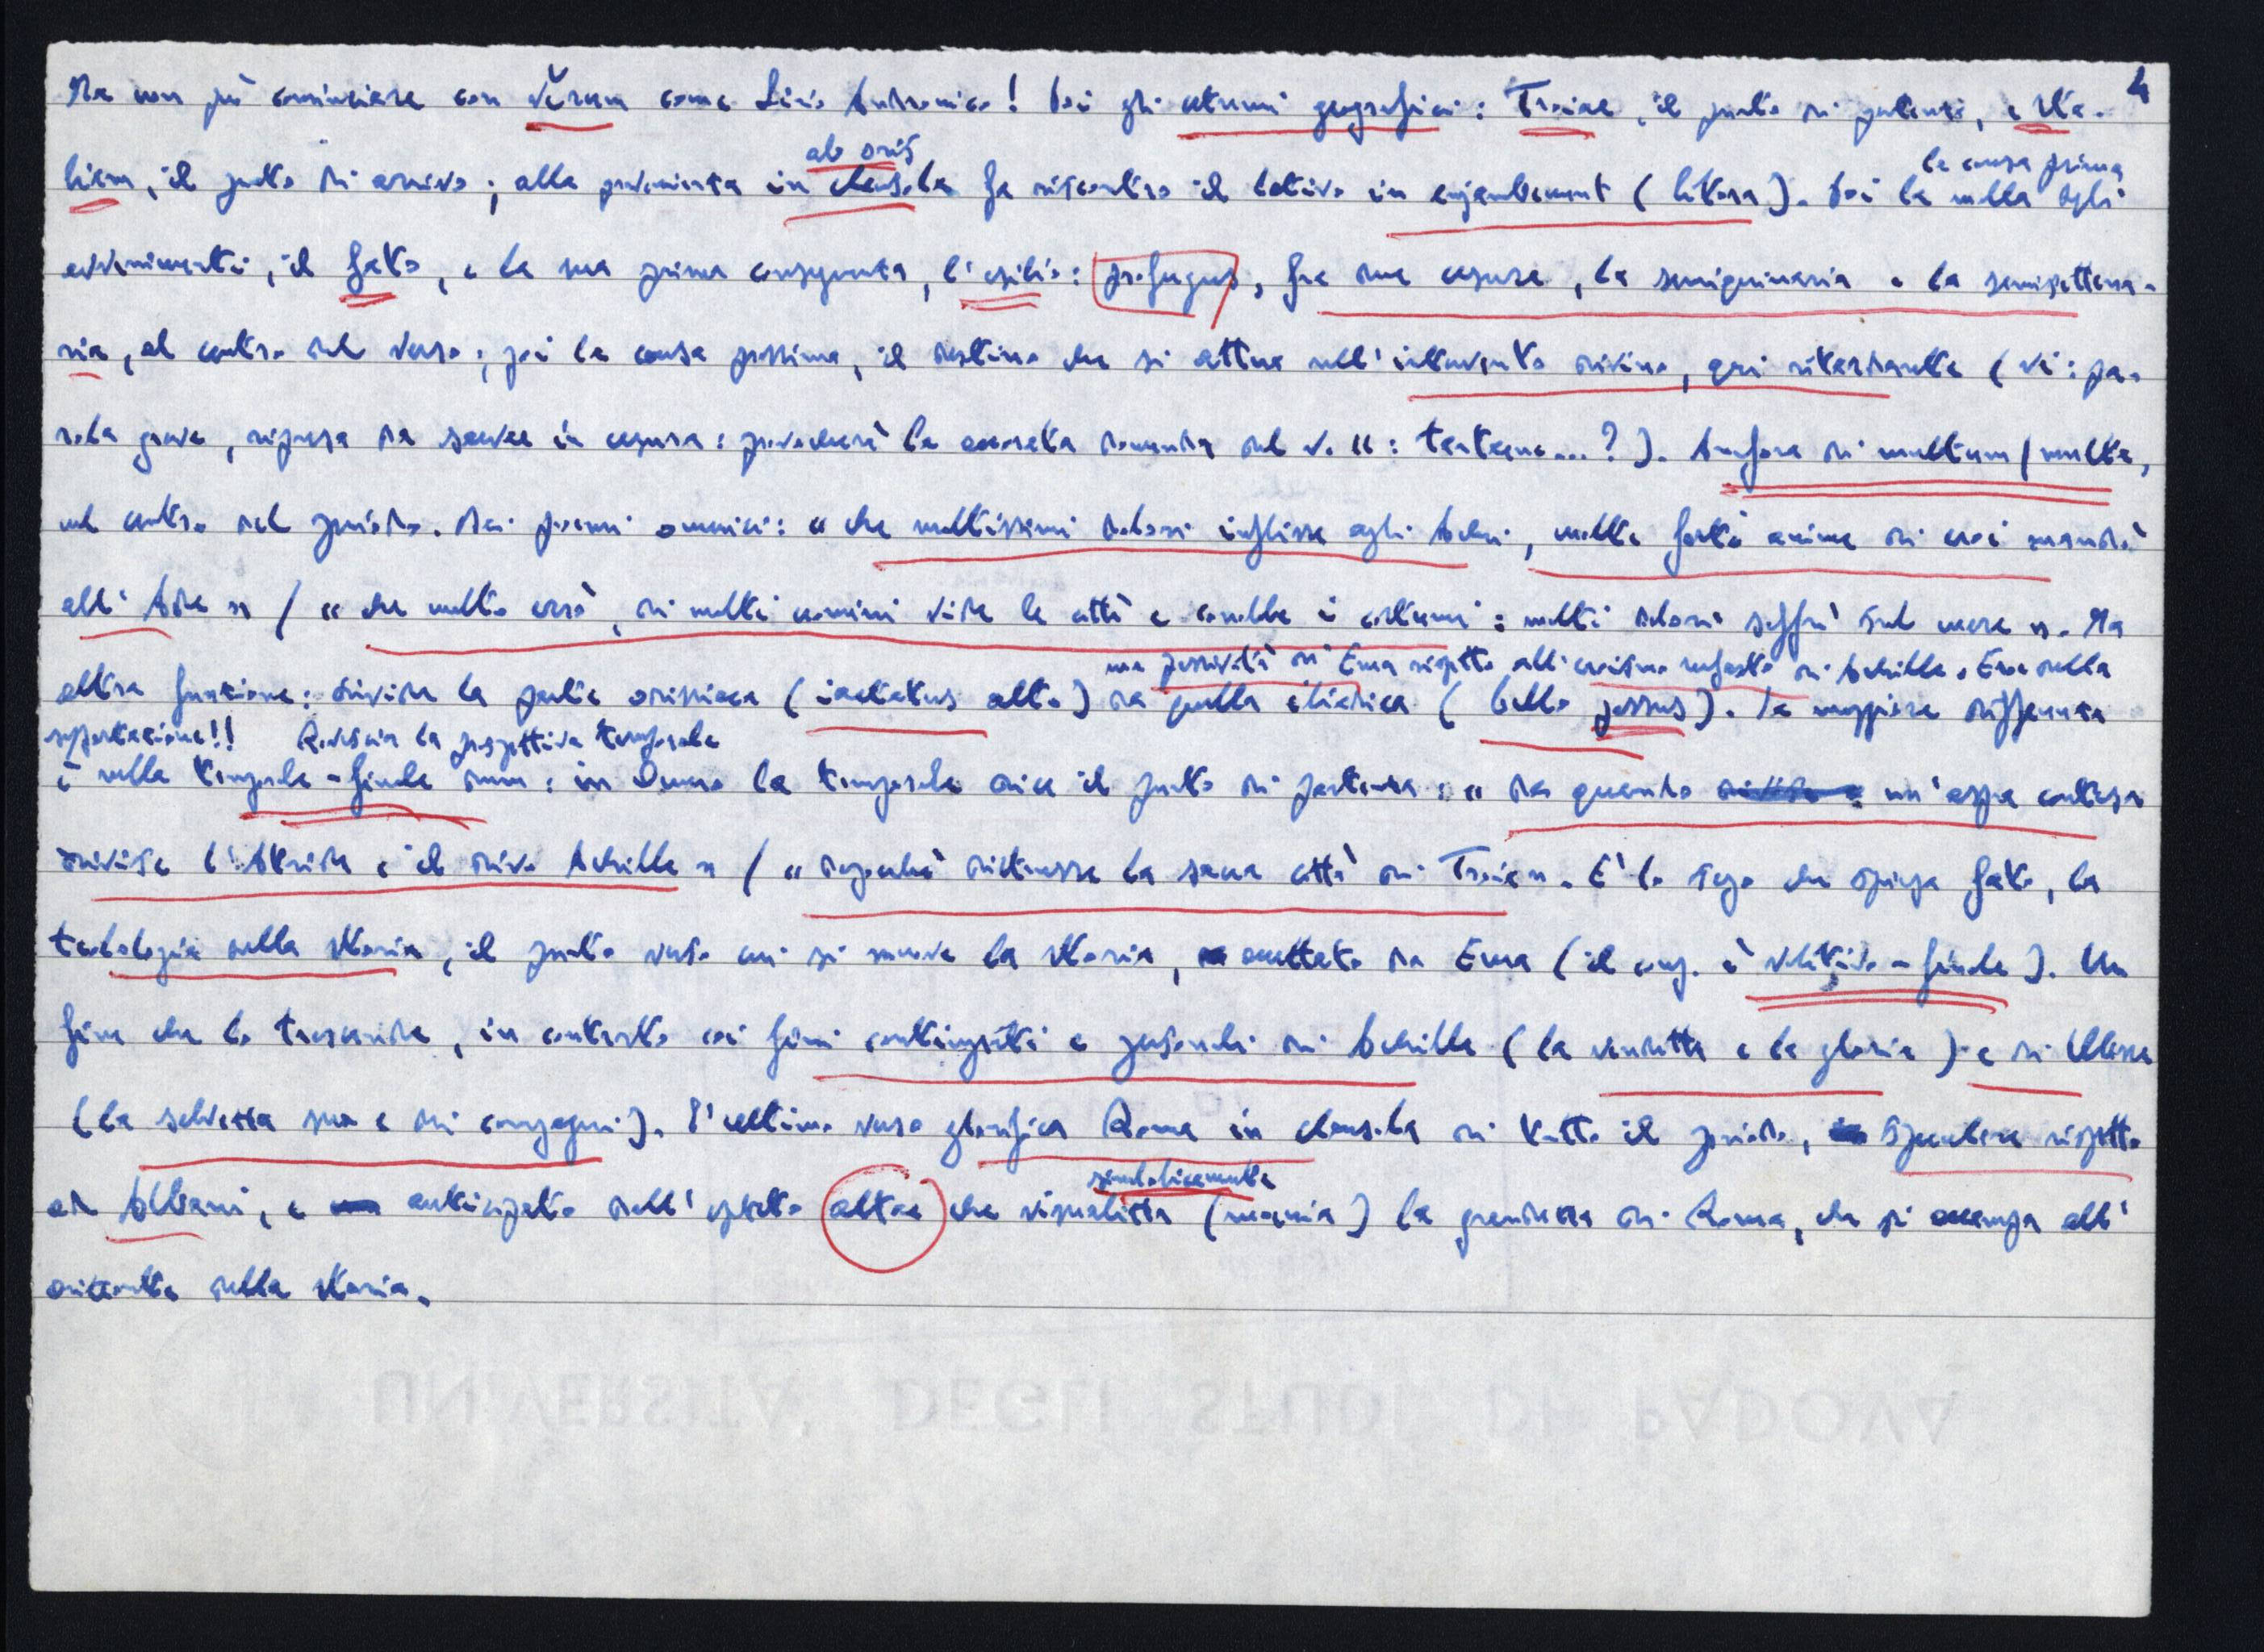 4
Ma non può cominciare con Vĭrum come Livio Andronico! Poi gli estremi geografici: Troiae, il punto di partenza, e Ita-
ab oris
liam, il punto di arrivo; alla provenienza in clausola fa riscontro il lativo in enjambement (litora). Poi la molla degli
la causa prima
avvenimenti, il fato, e la sua prima conseguenza, l'esilio: profugus, fra due cesure, la semiquinaria e la semisettena-
ria, al centro del verso; poi la causa prossima, il destino che si attua nell'intervento divino, qui ritardante (vi: pa-
rola grave, ripresa da saevae in cesura: provocherà la accorata domanda del v. 11: tantaene...?). Anafora di multum/multa,
nel centro del periodo. Dai poemi omerici: « che moltissimi dolori inflisse agli Achei, molte forti anime di eroi mandò
all'Ade » / « che molto errò, di molti uomini vide le città e conobbe i costumi: molti dolori soffrì sul mare ». Ma
ma passività di Enea rispetto all'eroismo nefasto di Achille. Eroe della
altra funzione: divide la parte odissiaca (iactatus alto) da quella iliadica (bello passus). La maggiore differenza
sopportazione!! Rovescia la prospettiva temporale
è nella temporale-finale dum: in Omero la temporale dice il punto di partenza: « da quando un'aspra contesa
divise l'Atride e il divo Achille » / « dopoché distrusse la sacra città di Troia ». È lo scopo che spiega fato, la
teleologia della storia, il punto verso cui si muove la storia, accettato da Enea (il cong. è volitivo-finale). Un
fine che lo trascende, in contrasto coi fini contingenti e personali di Achille (la vendetta e la gloria) e di Ulisse
(la salvezza sua e dei compagni). L'ultimo verso glorifica Roma in clausola di tutto il periodo, speculare rispetto
simbolicamente
ad Albani, e anticipato dall'epiteto altae che visualizza (moenia) la grandezza di Roma, che si accampa all'
orizzonte della storia.
UNIVERSITÀ DEGLI STUDI DI PADOVA